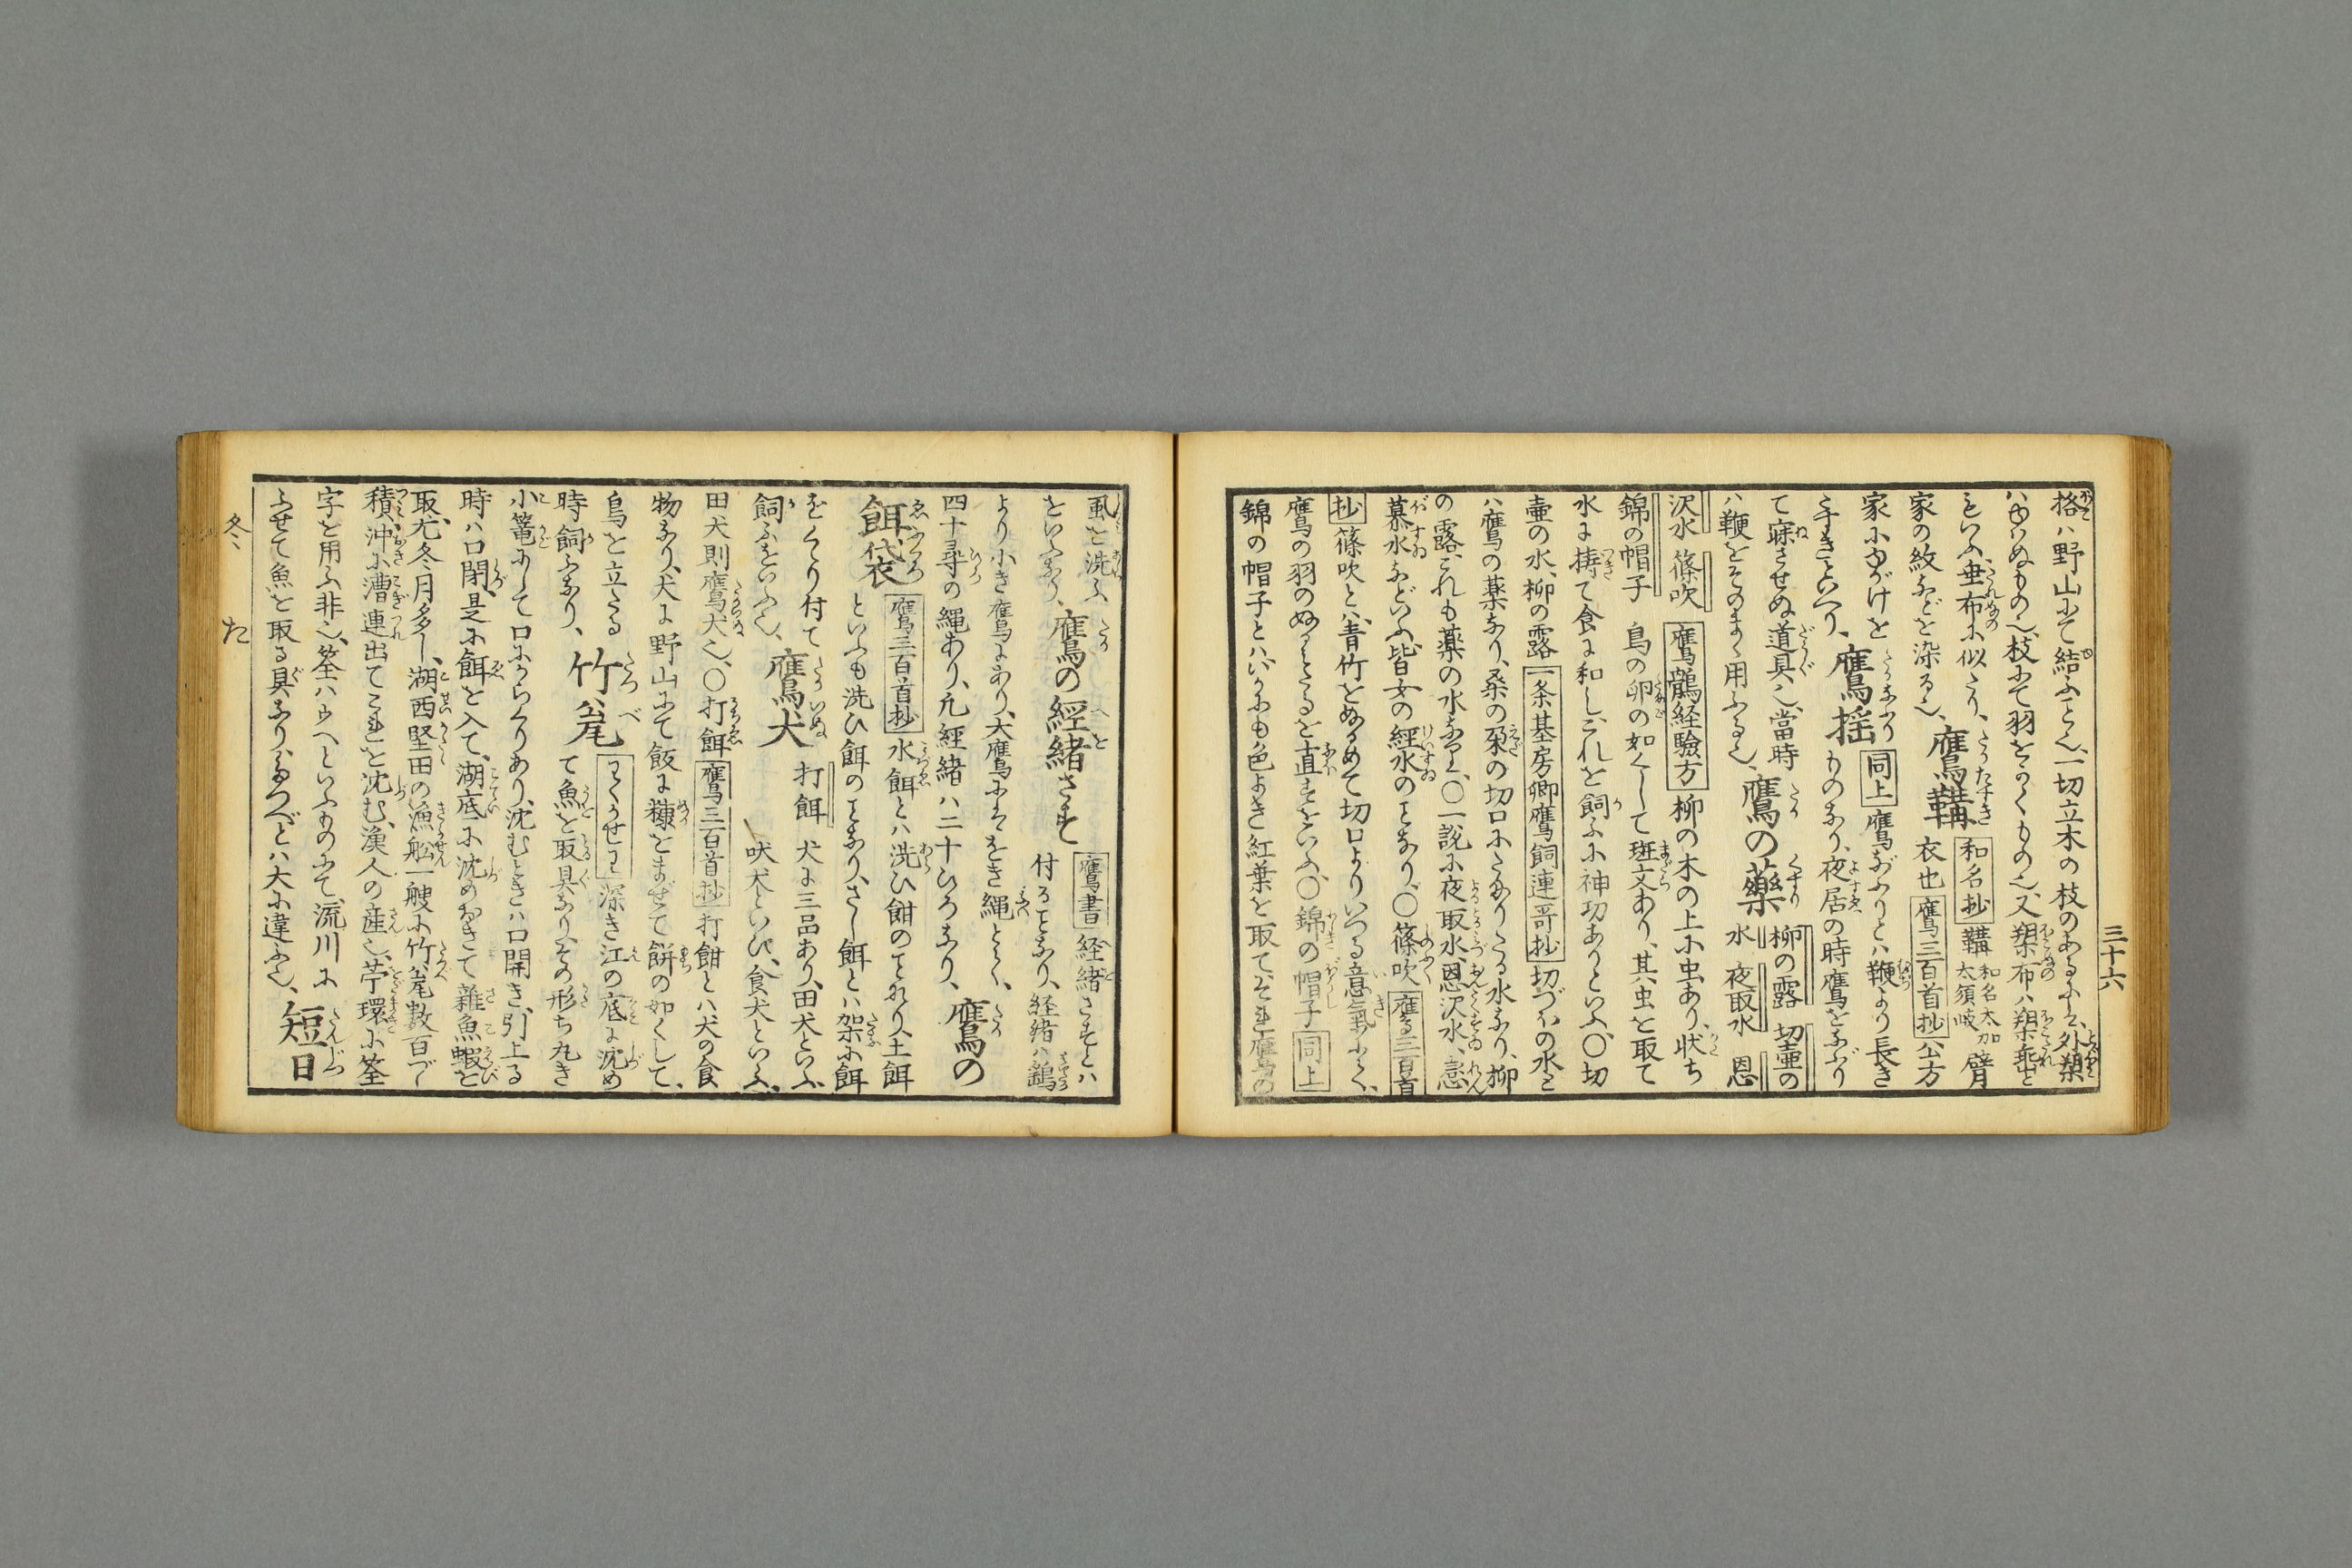 三十六
格ハ野山にて結ふと也、一切立木の枝のあるにハ、外架
ハゆハぬもの也、枝にて羽をかくもの也、又架布ハ架垂と
もいふ、垂布に似たり、鷹韝 和名抄 韝 和名太加太須岐 臂
衣也 鷹三百首抄 公方
家の紋などを染る也、
家にゆがけを
手すきといへり、鷹揺 同上 鷹なぶりとハ鞭より長き
ものなり、夜居の時鷹をなぶり
て寐させぬ道具也、當時
ハ鞭をそのまゝ用ふる也、鷹の藥 柳の露 切壷の
水 夜取水 恩
沢水 篠吹
錦の帽子 鷹鶻経驗方 柳の木の上に虫あり、状ち
鳥の卵の如くして斑文あり、其虫を取て
水に擣て食に和し、これを飼ふに神功ありといふ、〇切
壷の水、柳の露 一条基房卿鷹飼連哥抄 切づボの水と
ハ鷹の薬なり、桑の朶の切口にたまりたる水なり、柳
の露、これも薬の水なり、〇一説に夜取水、恩沢水、恋
慕水などいふ、皆女の経水の事なり、〇篠吹 鷹三百首
抄 篠吹とハ、青竹をぬるめて切口よりいづる意気にて、
鷹の羽のぬけたるを直すをいふ、〇錦の帽子 同上
錦の帽子とハ、いかにも色よき紅葉を取て、それを鷹の
風を洗ふ
をいふなり、鷹の經緒さす 鷹書 経緒さすとハ
付る事なり、経緒ハ鷂
より小き鷹にあり、大鷹にハをき縄とて、
四十尋の縄あり、凡經緒ハ二十ひろなり、鷹の
餌袋 鷹三百首抄 水餌とハ洗ひ餌の事なり、土餌
といふも洗ひ餌の事なり、さし餌とハ架に餌
をくゝり付て
飼ふをいふ也、鷹犬 打餌 犬に三品あり、田犬といふ
吠犬といひ、食犬といふ、
田犬則鷹犬也、〇打餌 鷹三百首抄 打餌とハ犬の食
物なり、犬に野山にて飯に糠をまぜて餅の如くして、
鳥を立たる
時飼ふなり、竹瓮 深き江の底に沈め
て魚を取具なり、その形ち丸き
小篭にして口にからくりあり、沈むときハ口開き、引上る
時ハ口閉、是に餌を入て、湖底に沈めおきて雜魚蝦を
取、尤冬月多し、湖西堅田の漁舩一艘に竹瓮数百づゝ
積、沖に漕連出てこれを沈む、漁人の産也、苧環に筌
字を用ふ非也、筌ハうへといふものにて、流川に
ふせて魚を取る具なり、たつべとハ大に違ふ也、短日
冬 た